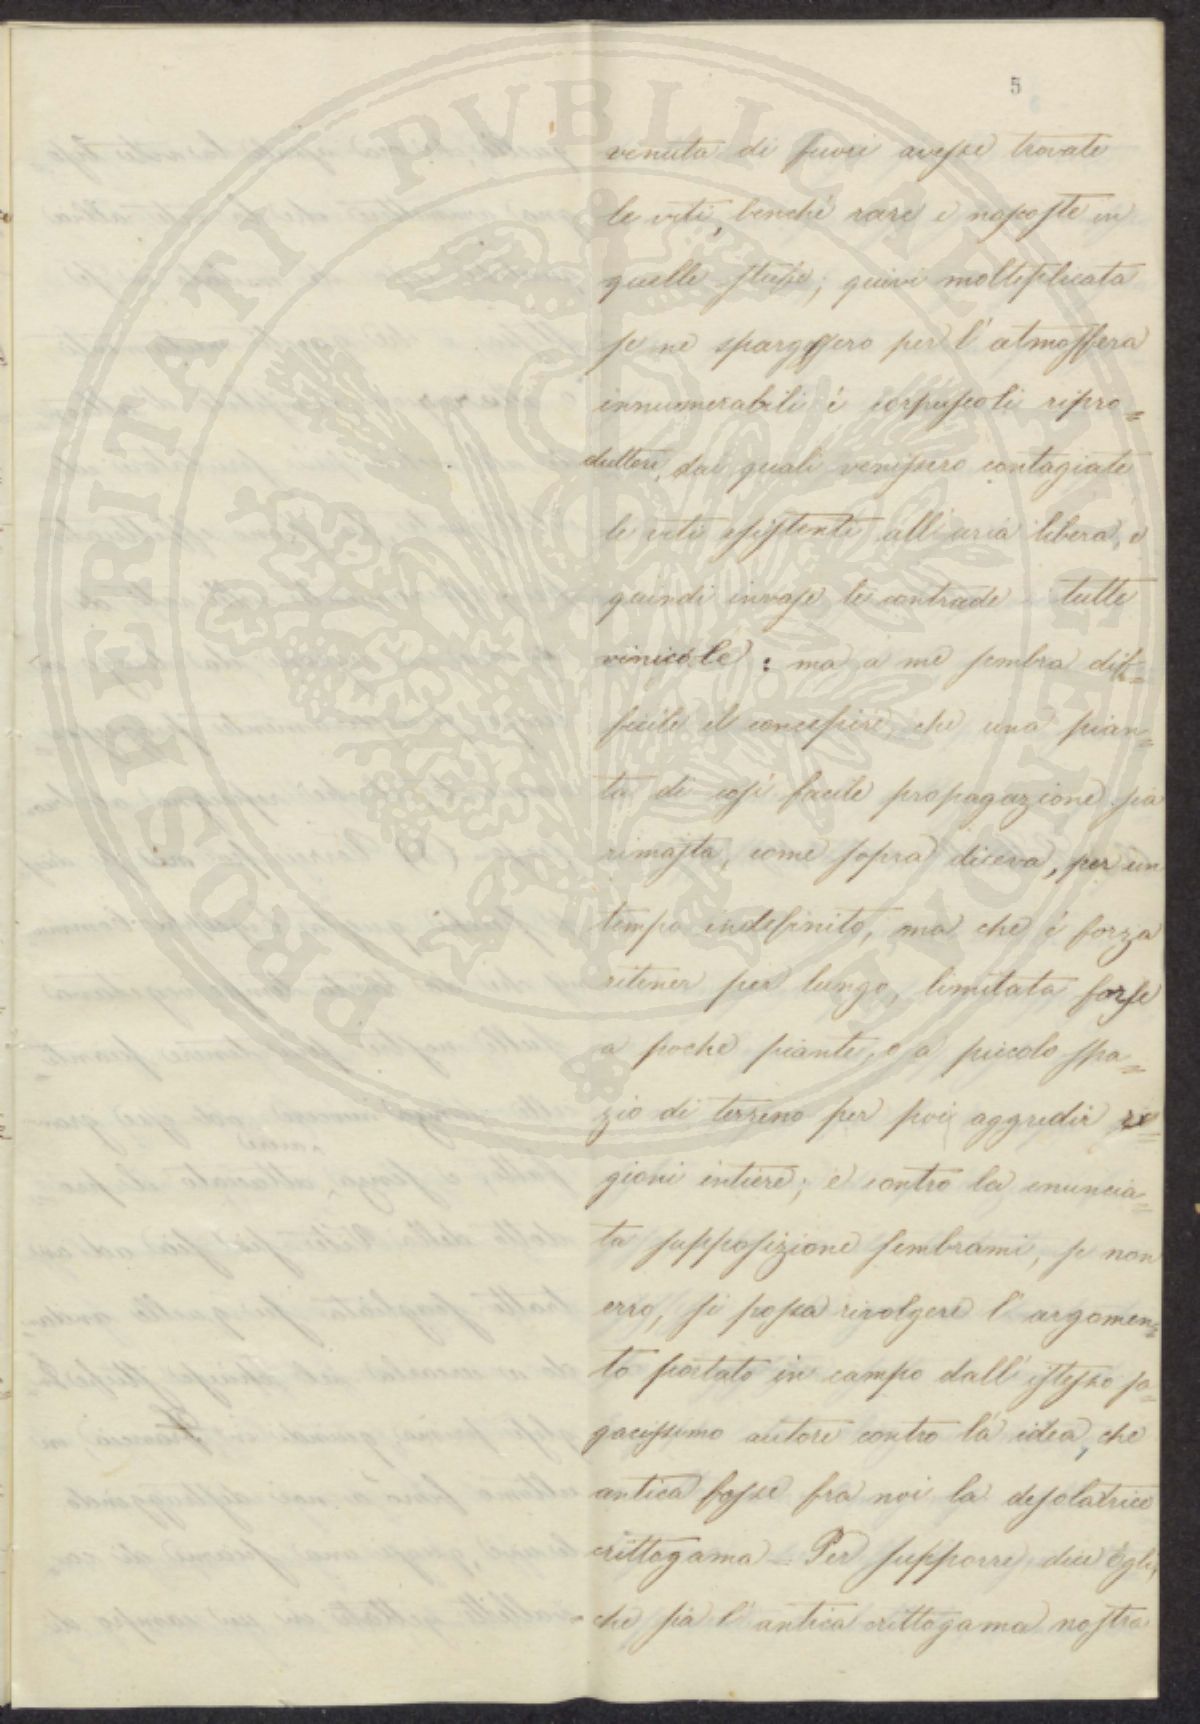 5
venuta di fuori avesse trovate
le viti, benchè rare e nascoste in
quelle stufe; quivi moltiplicata
se ne spargessero per l'atmosfera
innumerabili i corpuscoli ripro=
duttori, dai quali venissero contagiate
le viti esistenti all'aria libera, e
quindi invase le contrade tutte
vinicole: ma a me sembra dif=
ficile il concepire, che una pian=
ta di così facile propagazione sia
rimasta, come sopra diceva, per un
tempo indefinito, ma che è forza
ritener per lungo, limitata forse
a poche piante, e a piccolo spa=
zio di terreno per poi aggredir re=
gioni intiere; e contro la enuncia=
ta supposizione sembrami, se non
erro, si possa rivolgere l'argomen=
to portato in campo dall'istesso sa=
gacissimo autore contro la idea, che
antica fosse fra noi la desolatrice
crittogama - Per supporre, dice Egli,
che sia l'antica crittogama nostra
PROSPERITATI PVBLICAE AVGENDAE